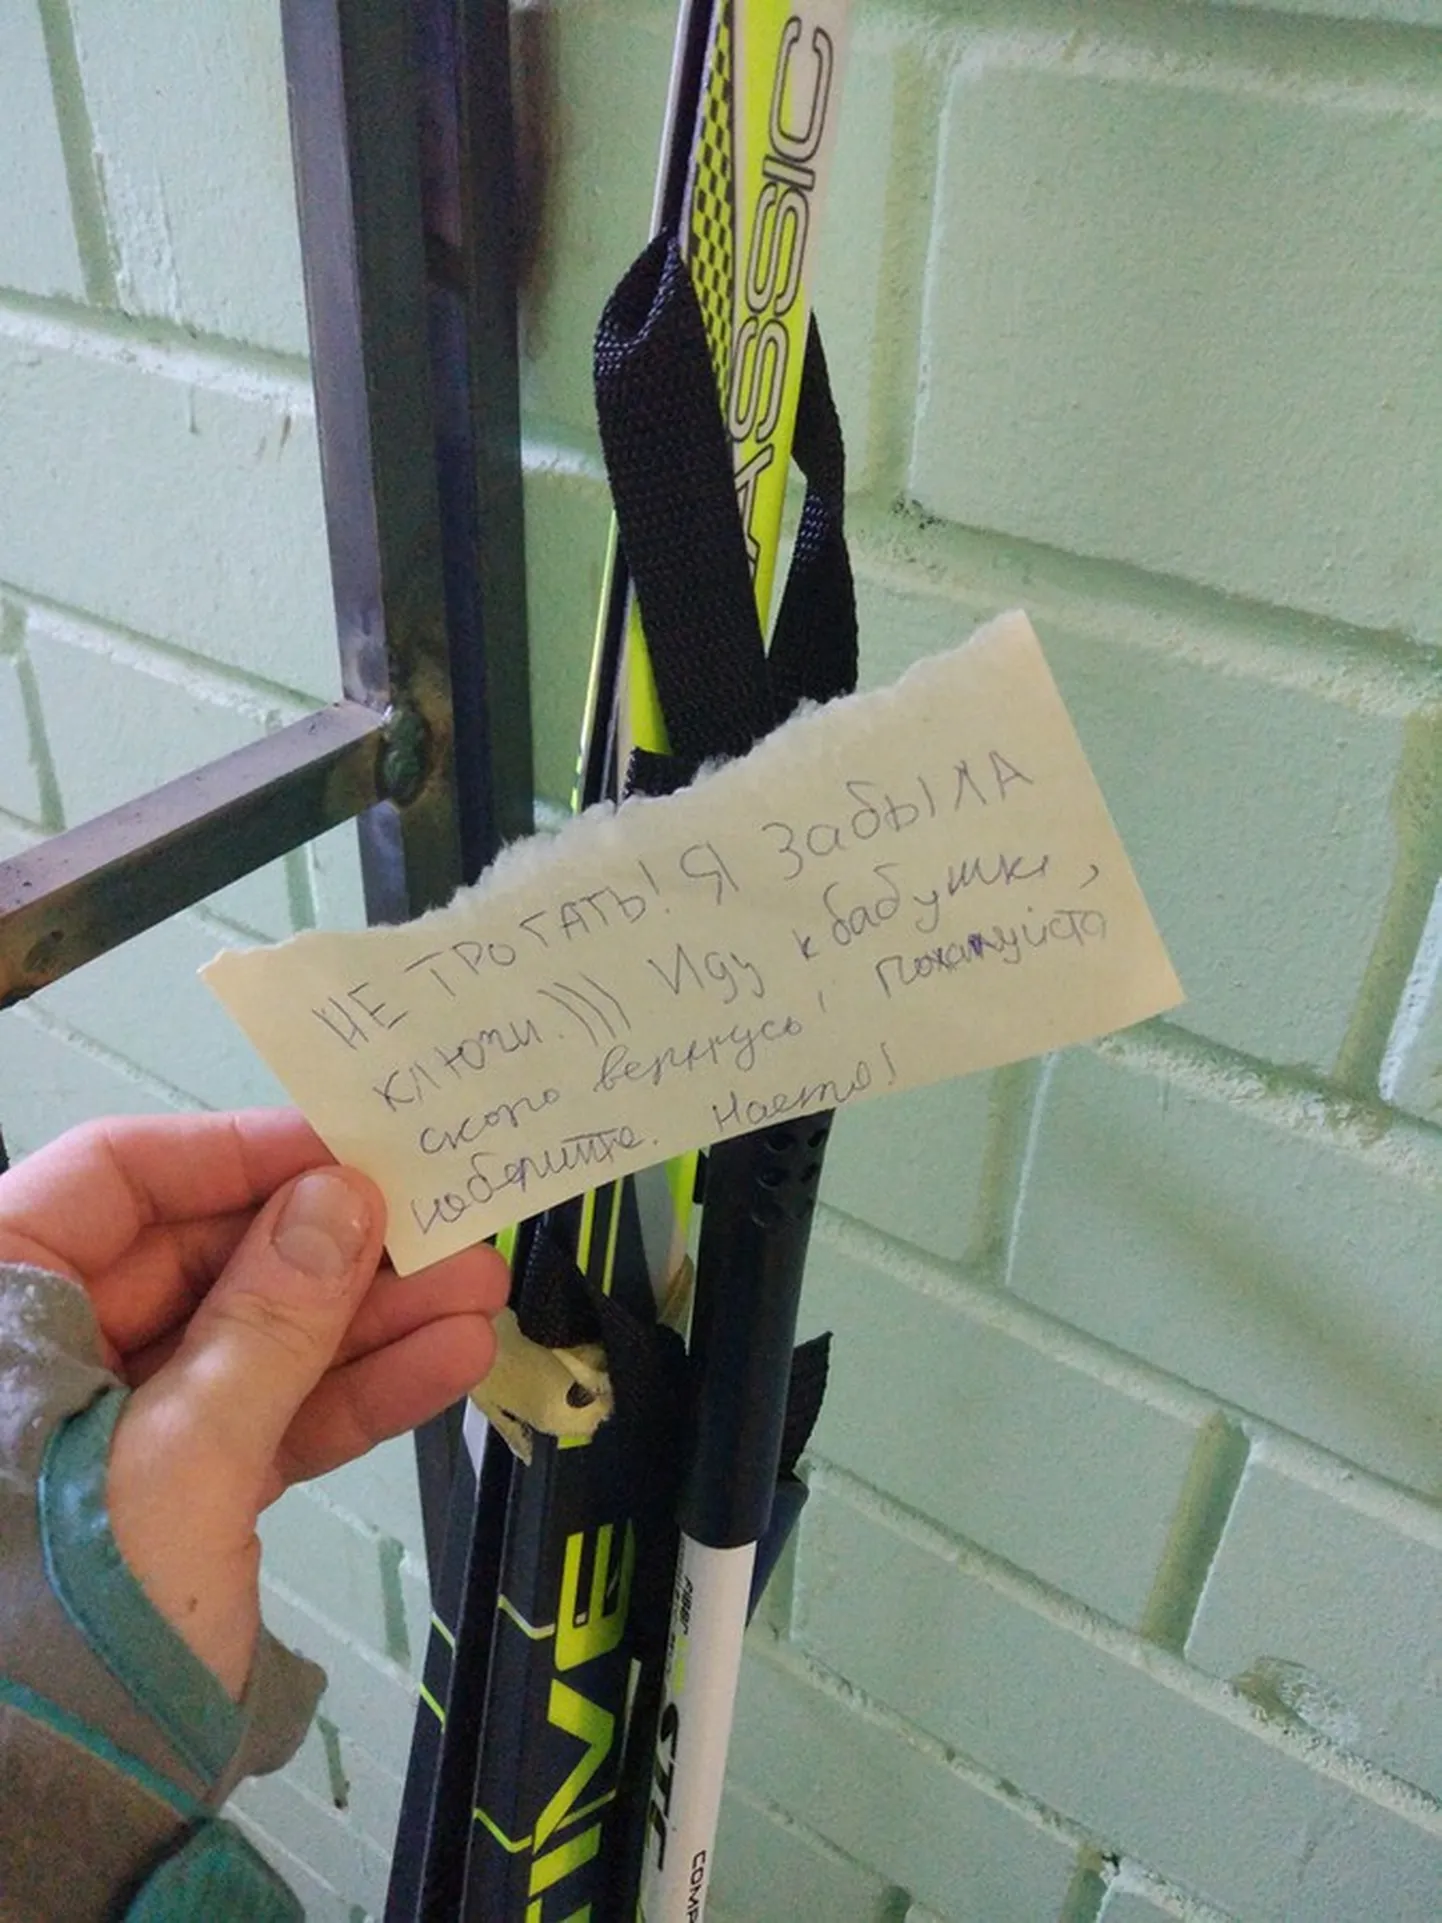 CLASSIC
НЕ ТРОГАТЬ! Я забыЛА
ключи.))) Иду к бабушке,
скоро вернусь, пожалуйста
не берите. Настя!
TIVE
STC
COMP